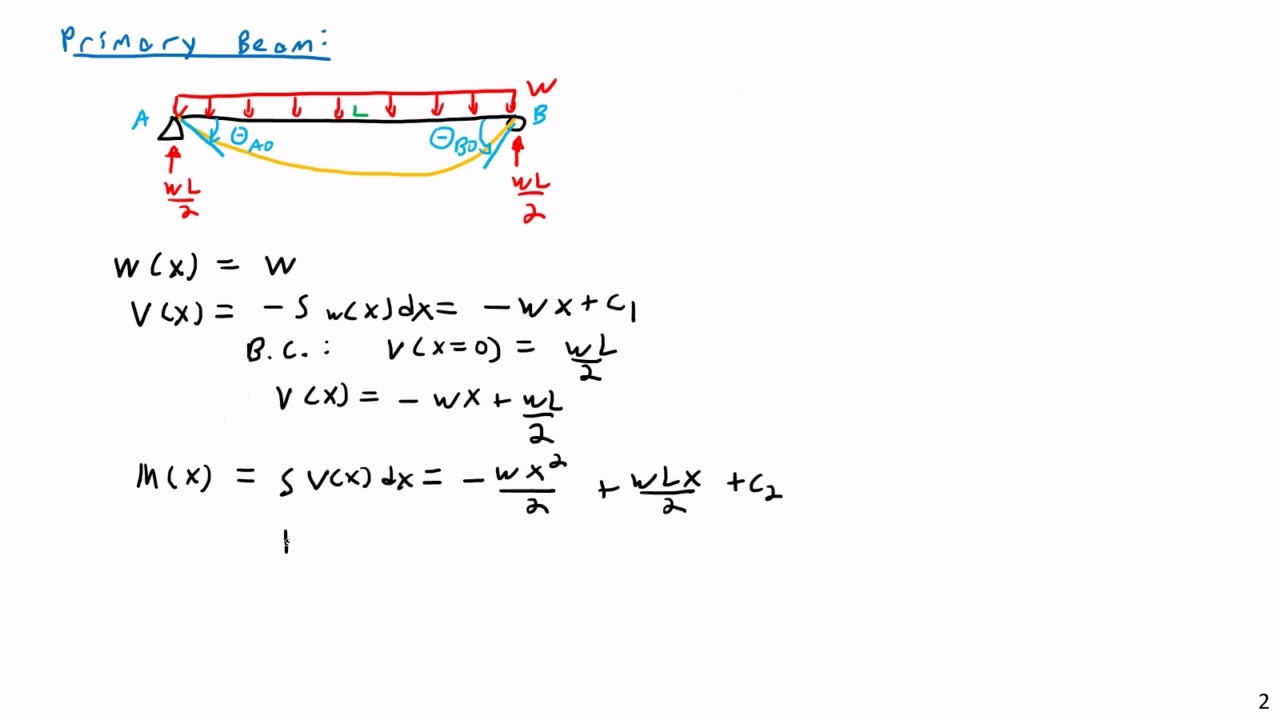 Primary Beam:
W
A
L
B
θA0
θB0
wL/2
wL/2
w(x) = w
V(x) = -∫ w(x)dx = -wx + C1
B.C.: V(x=0) = wL/2
V(x) = -wx + wL/2
M(x) = ∫ V(x)dx = -wx²/2 + wLx/2 + C2
2